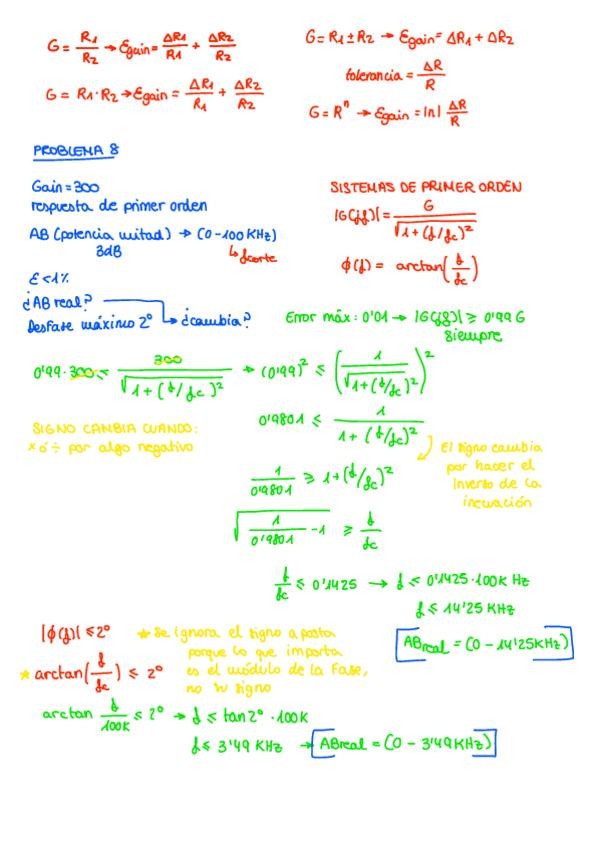 G = R1/R2 → Egain = ΔR1/R1 + ΔR2/R2
G = R1·R2 → Egain = ΔR1/R1 + ΔR2/R2
G = R1 ± R2 → Egain = ΔR1 + ΔR2
tolerancia = ΔR/R
G = Rⁿ → Egain = |n| ΔR/R
PROBLEMA 8
Gain = 300
respuesta de primer orden
AB (potencia mitad) → (0 - 100 KHz)
3dB
↳ fcorte
SISTEMAS DE PRIMER ORDEN
|G(jf)| = G / √(1 + (f/fc)²)
ϕ(f) = arctan(f/fc)
ε < 1%
¿AB real?
Desfase máximo 2° ↳ ¿cambia?
Error máx: 0'01 → |G(jf)| ≥ 0'99 G
siempre
0'99 · 300 ≤ 300 / √(1 + (f/fc)²) → (0'99)² ≤ (1 / √(1 + (f/fc)²))²
SIGNO CAMBIA CUANDO:
× ó ÷ por algo negativo
0'9801 ≤ 1 / (1 + (f/fc)²)
El signo cambia
por hacer el
inverso de la
inecuación
1/0'9801 ≥ 1 + (f/fc)²
√(1/0'9801 - 1) ≥ f/fc
f/fc ≤ 0'1425 → f ≤ 0'1425 · 100K Hz
f ≤ 14'25 KHz
ABreal = (0 - 14'25KHz)
|ϕ(f)| ≤ 2°
★ Se ignora el signo aposta
porque lo que importa
es el módulo de la fase,
no su signo
★ arctan(f/fc) ≤ 2°
arctan f/100K ≤ 2° → f ≤ tan2° · 100K
f ≤ 3'49 KHz → ABreal = (0 - 3'49 KHz)